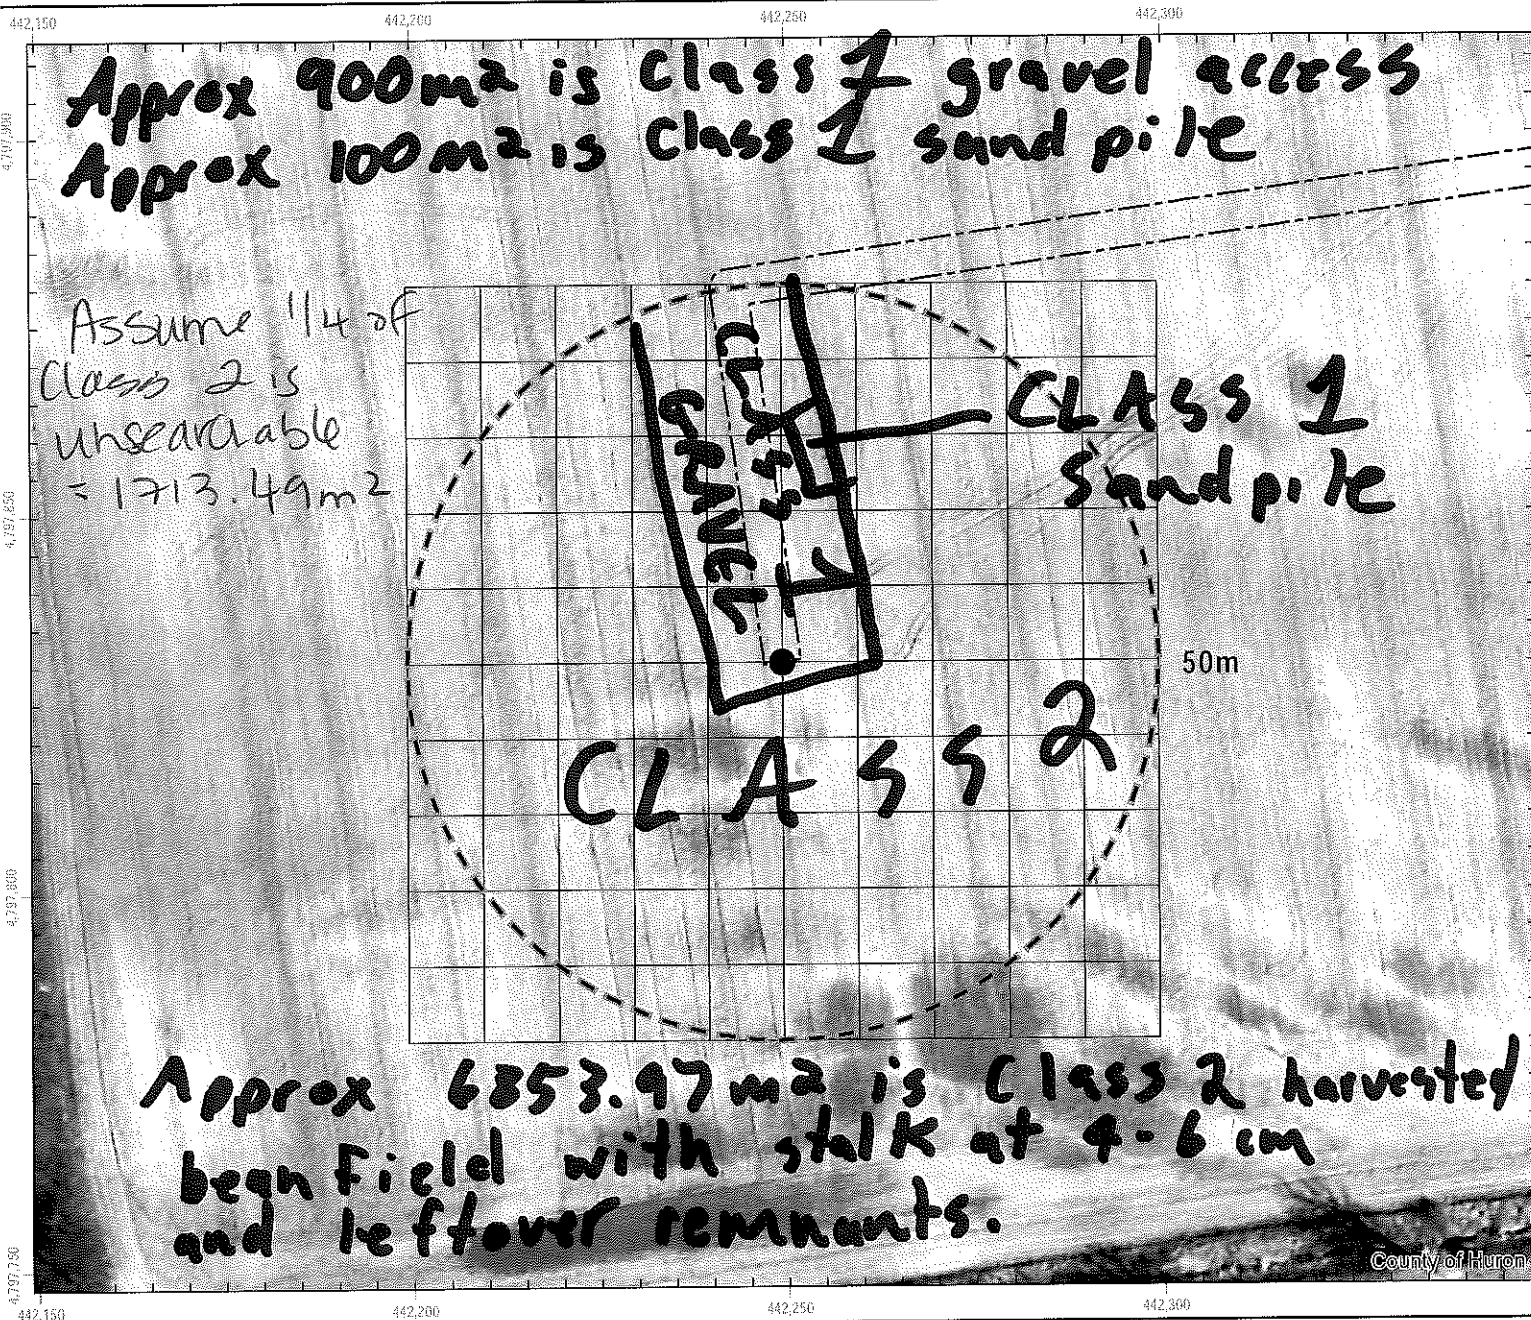 442,150 442,200 442,250 442,300
Approx 900m² is Class 1 gravel access
Approx 100m² is Class 1 sand pile
4,797,900
Assume 1/4 of
Class 2 is
unsearchable
= 1713.49m²
CLASS 1
GRAVEL
CLASS 1
Sandpile
4,797,850
50m
CLASS 2
4,797,800
Approx 6853.97m² is Class 2 harvested
bean field with stalk at 4-6 cm
and leftover remnants.
4,797,750
County of Huron
442,150 442,200 442,250 442,300